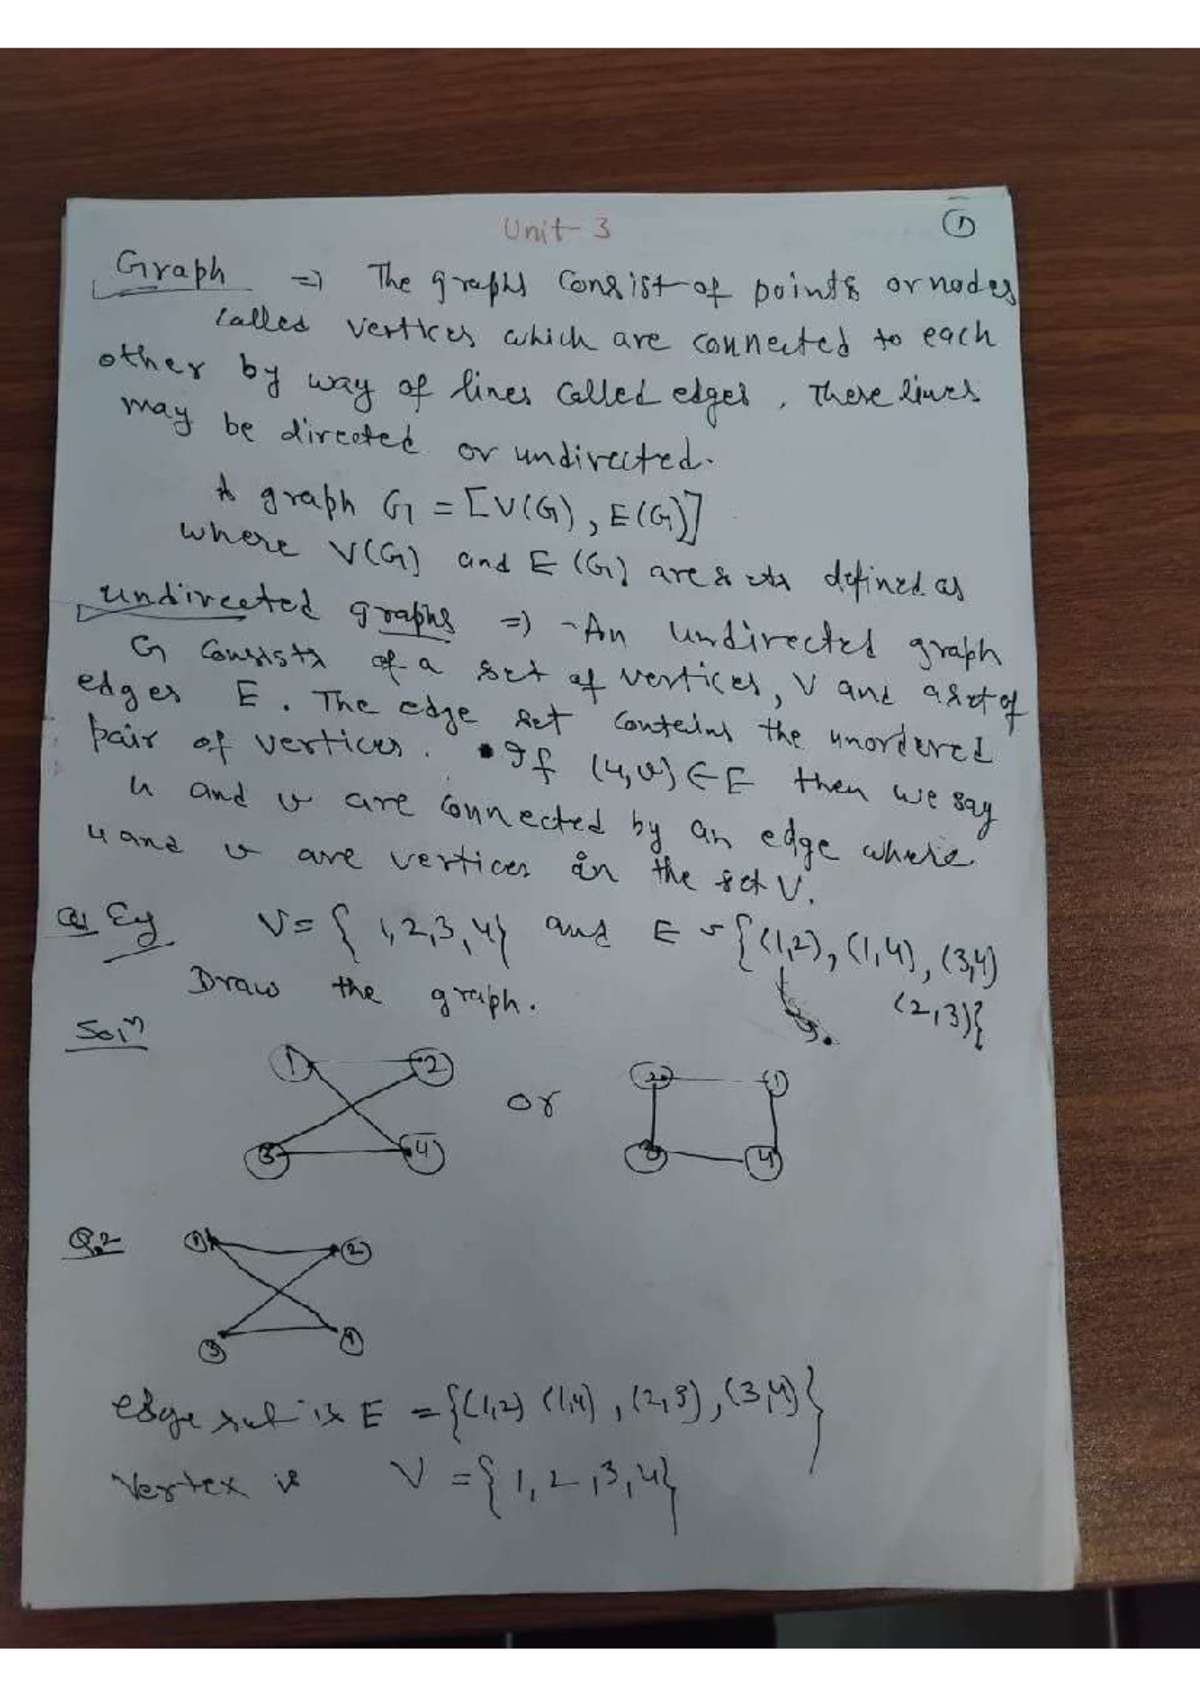 Unit-3
①
Graph ⇒ The graphs consist of points or nodes
called vertices which are connected to each
other by way of lines called edges. These lines
may be directed or undirected.
A graph G = [V(G), E(G)]
where V(G) and E(G) are sets defined as
undirected graphs ⇒ An undirected graph
G consists of a set of vertices, V and a set of
edges E. The edge set contains the unordered
pair of vertices. If (u,v) ∈ E then we say
u and v are connected by an edge where
u and v are vertices in the set V.
Q1 Eg V = { 1,2,3,4} and E = {(1,2), (1,4), (3,4)
(2,3)}
Draw the graph.
Sol^n
1 2
or
2 1
3 4
3 4
Q.2
1 2
3 4
edge set is E = {(1,2) (1,4), (2,3), (3,4)}
Vertex is V = { 1, 2, 3, 4}